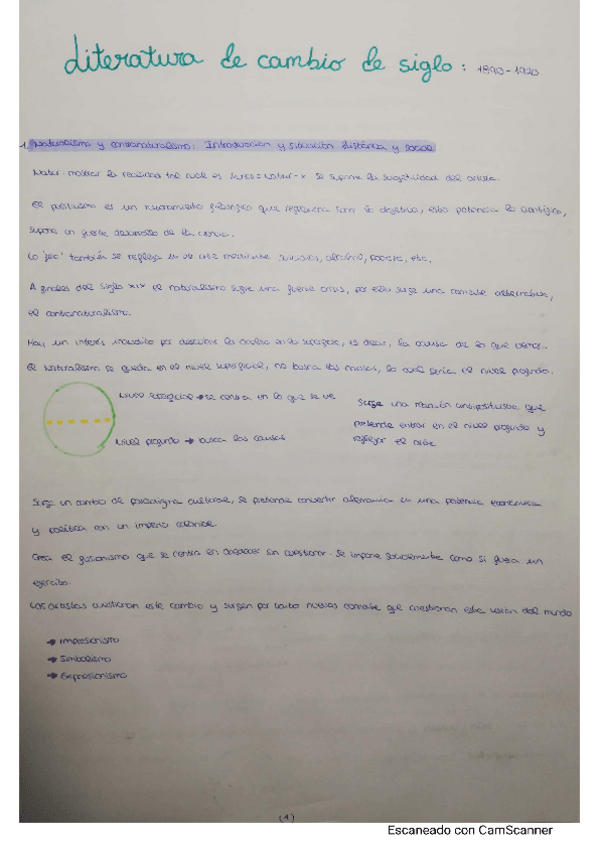 Literatura de cambio de siglo: 1890-1920
1. Naturalismo y contranaturalismo: Introducción y situación histórica y social
Natur- mostrar la realidad tal cual es Kunst = Natur - x Se suprime la subjetividad del artista.
El positivismo es un pensamiento filosófico que representa sólo lo objetivo, esto potencia lo científico,
supone un fuerte desarrollo de la ciencia.
Lo feo también se refleja en la obra mediante suicidios, alcohol, pobreza, etc.
A finales del siglo XIX el naturalismo sufre una fuerte crisis, por ello surge una corriente alternativa,
el contranaturalismo.
Hay un interés inaudito por descubrir lo oculto en la superficie, es decir, la causa de lo que vemos.
El Naturalismo se queda en el nivel superficial, no busca las causas, lo cual sería el nivel profundo.
Nivel superficial → se centra en lo que se ve
Nivel profundo → busca las causas
Surge una reacción antipositivista que
pretende entrar en el nivel profundo y
reflejar el
Surge un cambio de paradigma cultural, se pretende convertir Alemania en una potencia económica
y política con un imperio colonial.
Crea el que se centra en obedecer sin cuestionar. Se impone socialmente como si fuera un
ejército.
Los artistas cuestionan este cambio y surgen por tanto nuevas corrientes que cuestionan esta visión del mundo
→ Impresionismo
→ Simbolismo
→ Expresionismo
(1)
Escaneado con CamScanner